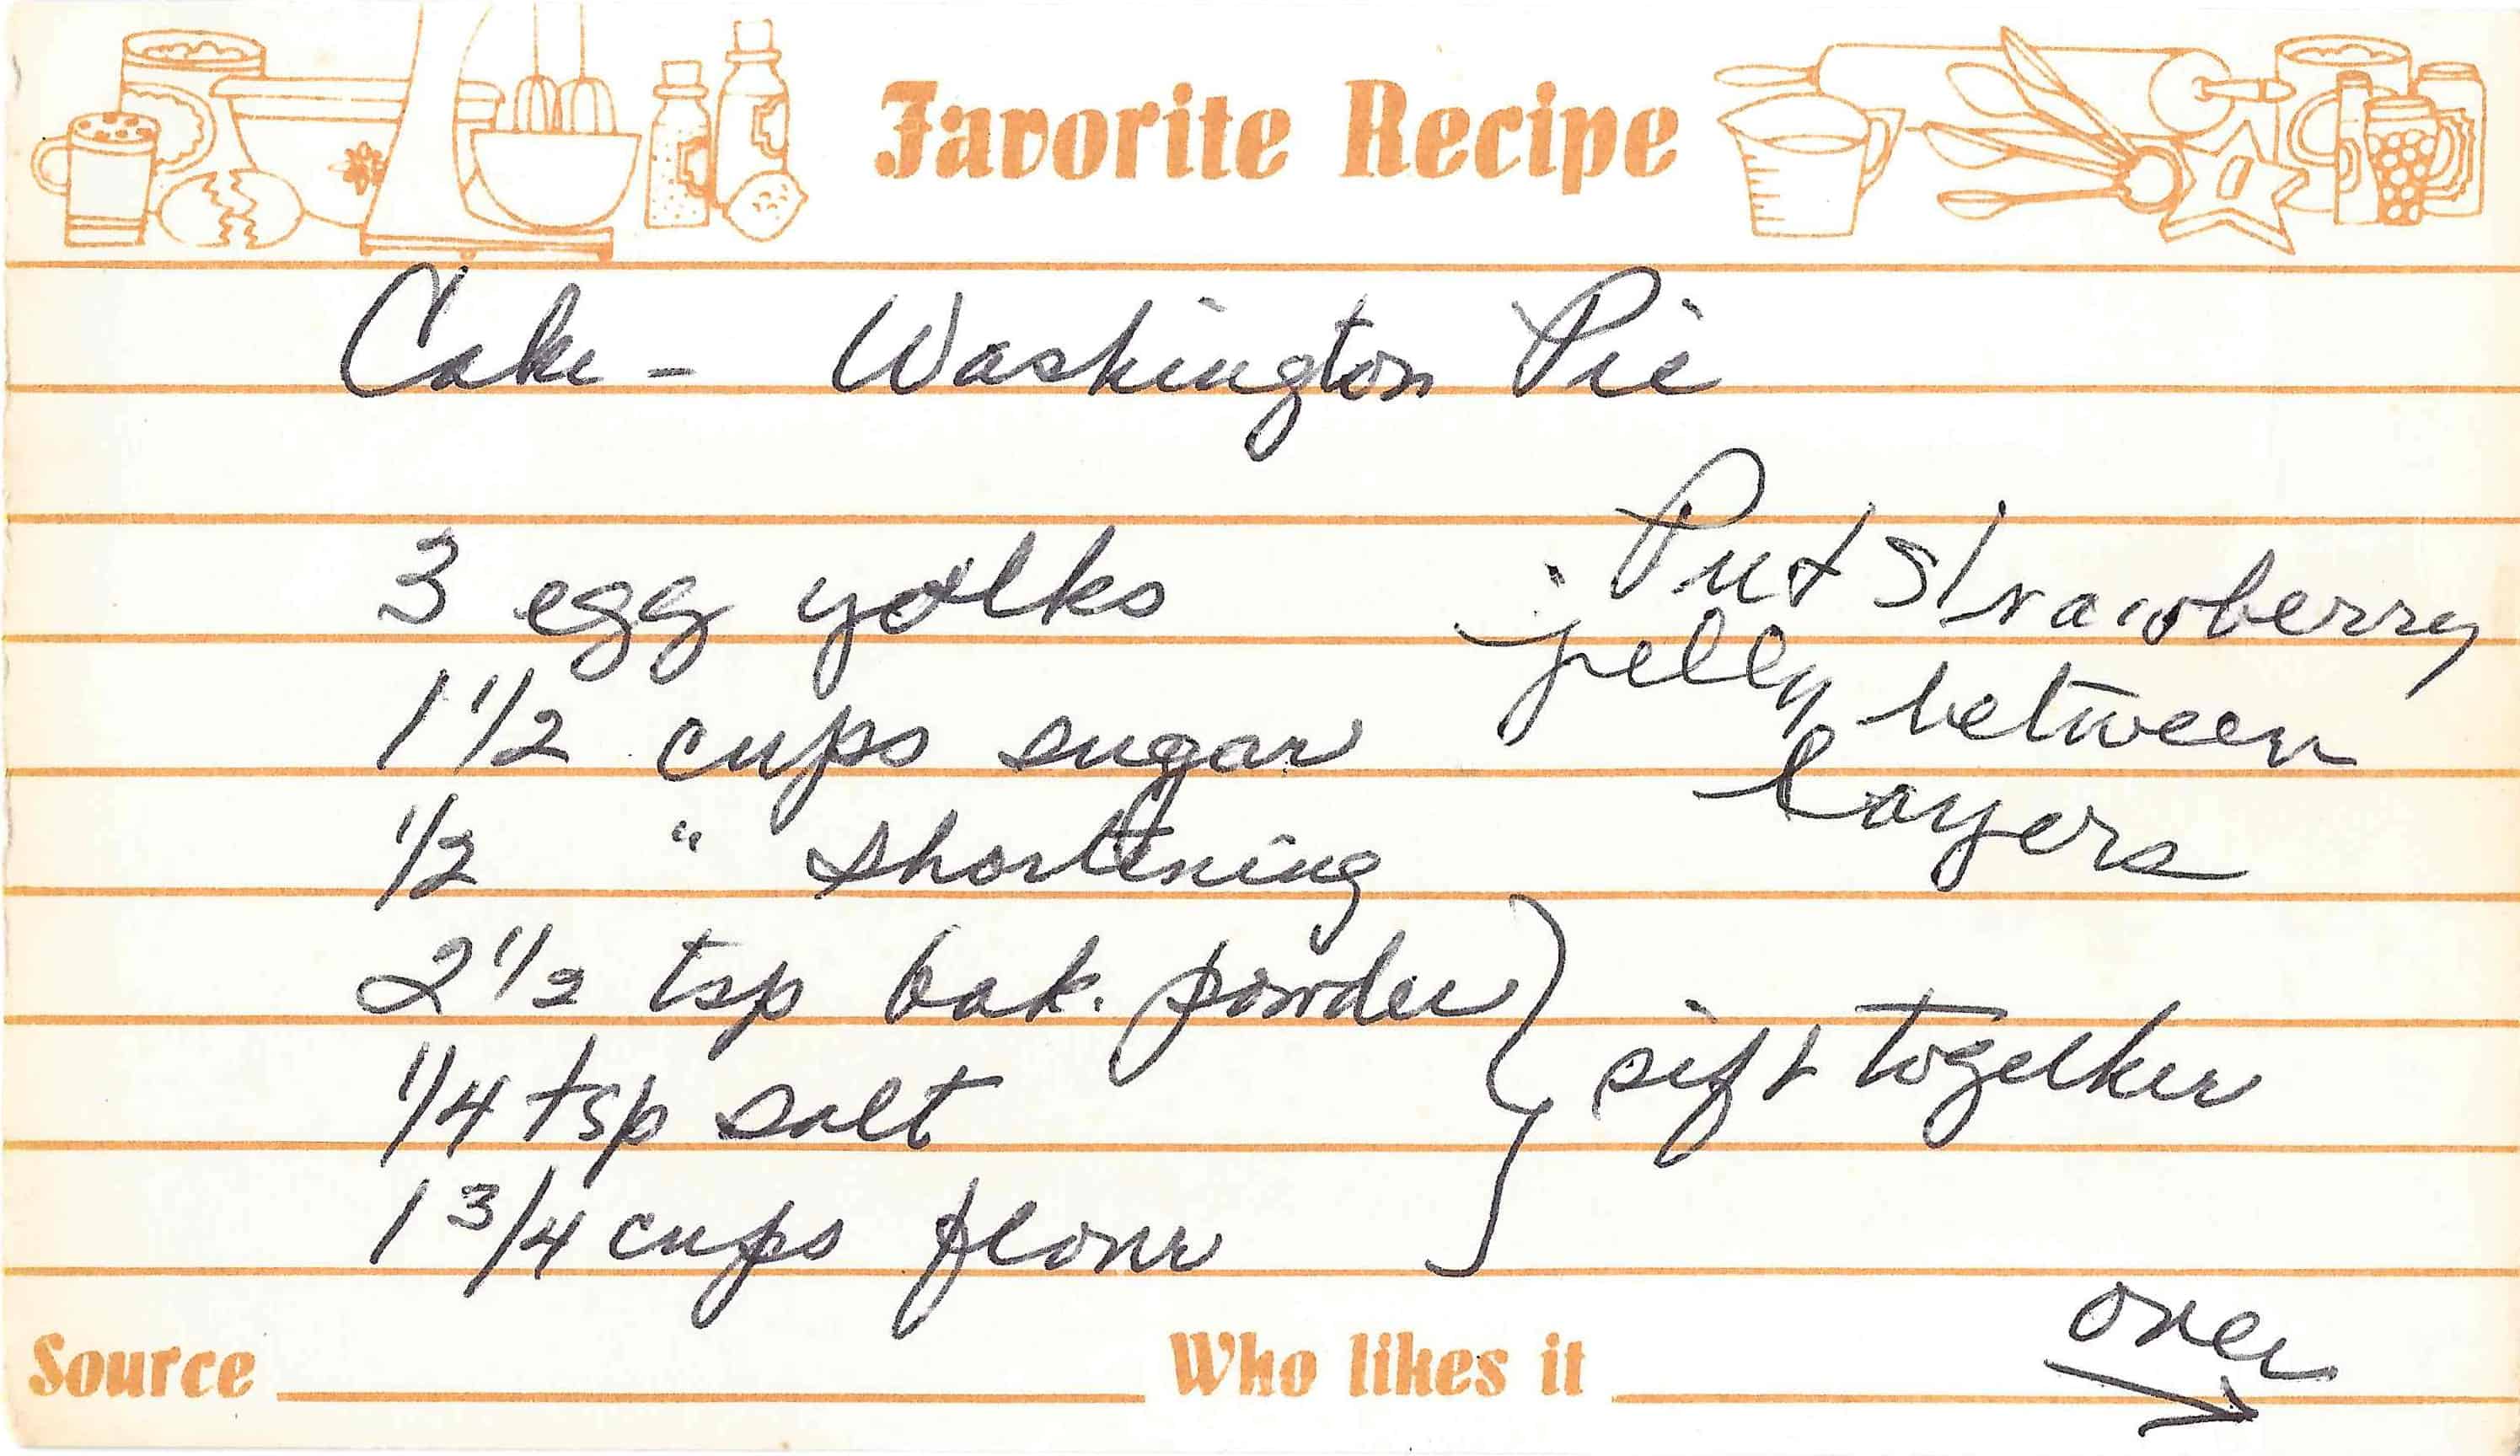 Favorite Recipe
Cake - Washington Pie
3 egg yolks
1 1/2 cups sugar
1/2 " shortening
2 1/2 tsp bak. powder
1/4 tsp salt
1 3/4 cups flour
Put Strawberry
jelly between
layers
sift together
over
Source
Who likes it